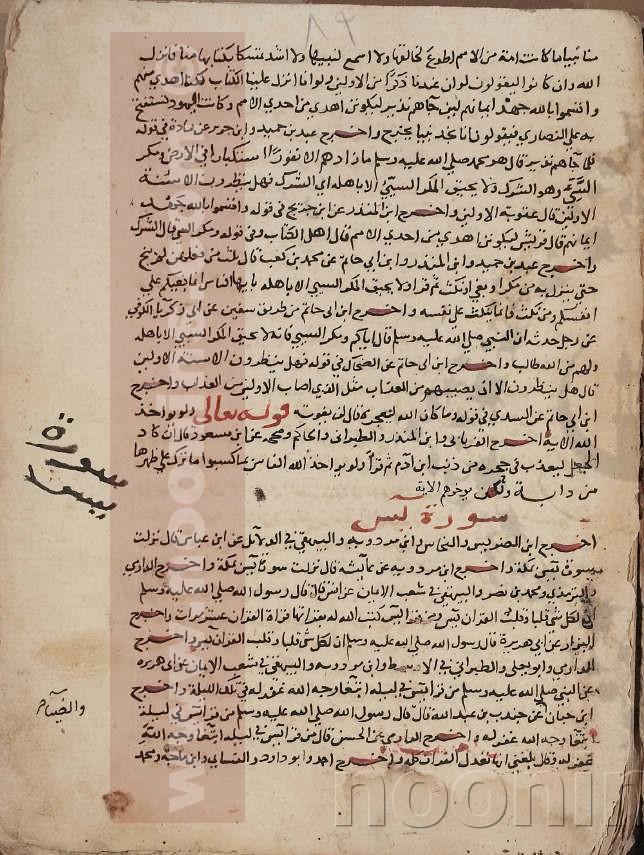 منا نبيا ما كانت امة من الامم اطوع لخالقها ولا اسمع لنبيها ولا اشد تمسكا بكتابها منا فانزل
الله وان كانوا ليقولون لو ان عندنا ذكرا من الاولين ولو انا انزل علينا الكتاب لكنا اهدي منهم
واقسموا بالله جهد ايمانهم لين جاهم نذير ليكونن اهدي من احدي الامم وكانت اليهود تستفتح
به علي النصاري فيقولون انا نجد نبيا يخرج واخرج عبد بن حميد وابن جرير عن قتادة في قوله
فلما جاهم نذير قال هو محمد صلي الله عليه وسلم ما زادهم الا نفورا استكبارا في الارض ومكر
السيي وهو الشرك ولا يحيق المكر السيي الا باهله اي الشرك فهل ينظرون الا سنة
الاولين قال عقوبة الاولين واخرج ابن المنذر عن ابن جريج في قوله واقسموا بالله جهد
ايمانهم قال قريش ليكونن اهدي من احدي الامم قال اهل الكتاب وفي قوله ومكر السي قال الشرك
واخرج عبد بن حميد وابن المنذر وابن ابي حاتم عن محمد بن كعب قال ثلث من فعلهن لم ينج
حتي ينزل به من مكر او بغي او نكث ثم قرا ولا يحيق المكر السيي الا باهله يا ايها الناس انما بغيكم علي
انفسكم ومن نكث فانما ينكث علي نفسه واخرج ابن ابي حاتم من طريق سفين عن ابي زكريا الكوفي
عن رجل حدثه ان النبي صلي الله عليه وسلم قال اياكم ومكر السيي فانه لا يحيق المكر السيي الا باهله
ولهم من الله طالب واخرج ابن ابي حاتم عن الضحاك في قوله فهل ينظرون الا سنة الاولين
قال هل ينظرون الا ان يصيبهم من العذاب مثل الذي اصاب الاولين من العذاب واخرج
ابن ابي حاتم عن السدي في قوله وما كان الله ليعجزه قال لن يفوته قوله تعالي ولو يواخذ
الله الاية اخرج الفريابي وابن المنذر والطبراني والحاكم وصححه عن ابن مسعود قال ان كاد
الجعل ليعذب في جحره من ذنب ابن آدم ثم قرا ولو يواخذ الله الناس بما كسبوا ما ترك علي ظهرها
من دابة ولكن يوخرهم الاية
سورة يس
سورة يس
اخرج ابن الضريس والنحاس وابن مردويه والبيهقي في الدلائل عن ابن عباس قال نزلت
سورة يس بمكة واخرج ابن مردويه عن عايشة قال نزلت سورة يس بمكة واخرج الدارمي
والترمذي ومحمد بن نصر والبيهقي في شعب الايمان عن انس قال قال رسول الله صلي الله عليه وسلم
ان لكل شي قلبا وقلب القران يس ومن قرا يس كتب الله له بقراتها قراة القران عشر مرات واخرج
البزار عن ابي هريرة قال رسول الله صلي الله عليه وسلم ان لكل شي قلبا وقلب القران يس واخرج
الدارمي وابو يعلي والطبراني في الاوسط وابن مردويه والبيهقي في شعب الايمان عن ابي هريرة
عن النبي صلي الله عليه وسلم من قرا يس في ليلة ابتغا وجه الله غفر له في تلك الليلة واخرج
ابن حبان عن جندب بن عبد الله قال قال رسول الله صلي الله عليه وسلم من قرا يس في ليلة
ابتغا وجه الله غفر له واخرج الدارمي عن الحسن قال من قرا يس في ليلة ابتغا وجه الله
غفر له وقال بلغني انها تعدل القران كله واخرج احمد وابو داود والنساي وابن ماجه ومحمد